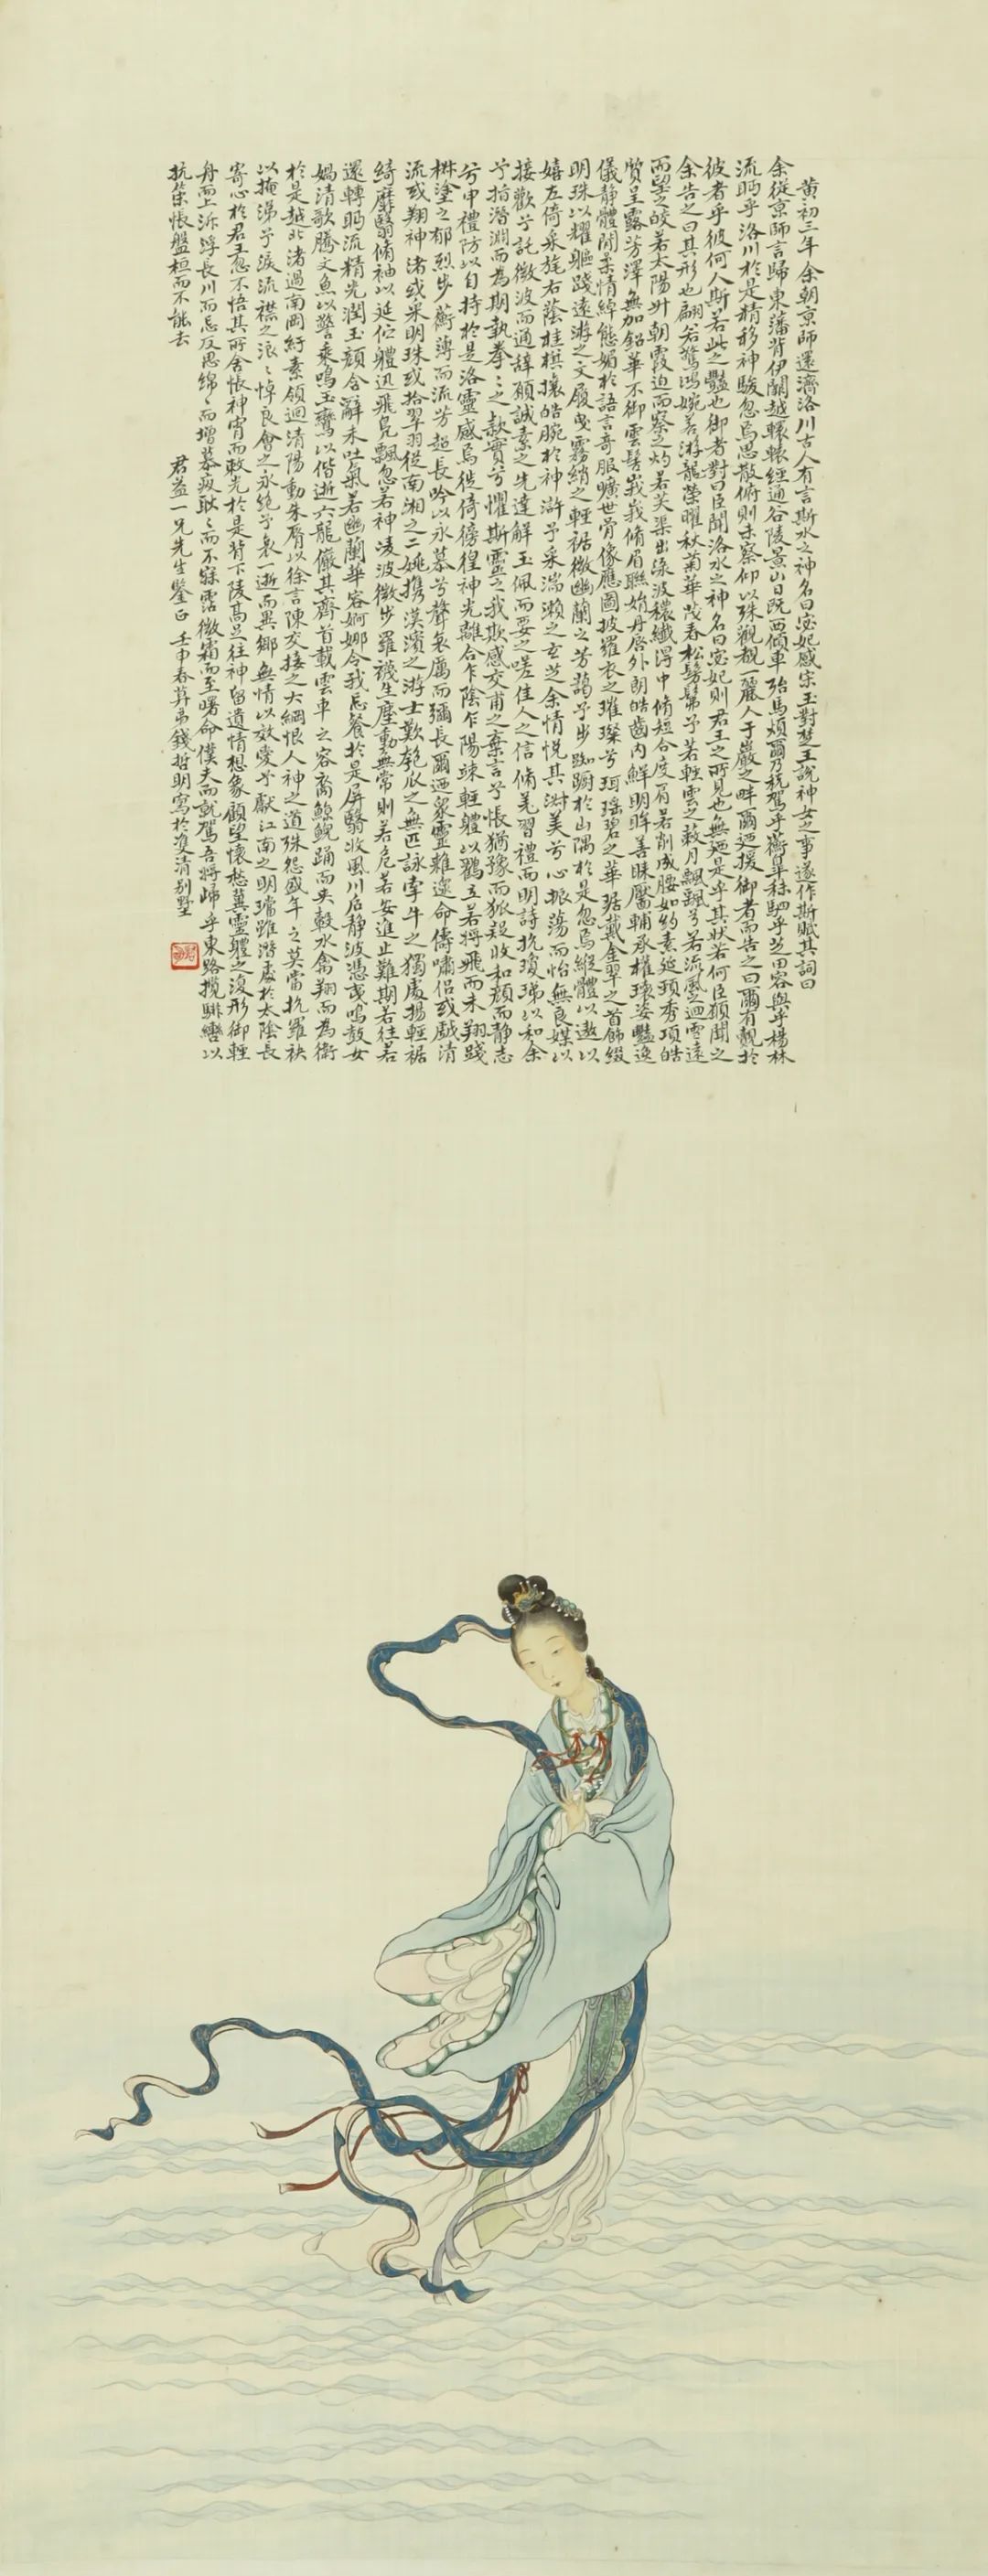 黃初三年余朝京師還濟洛川古人有言斯水之神名曰宓妃感宋玉對楚王說神女之事遂作斯賦其詞曰
余從京師言歸東藩背伊闕越轘轅經通谷陵景山日既西傾車殆馬煩爾乃稅駕乎蘅皋秣駟乎芝田容與乎楊林
流眄乎洛川於是精移神駭忽焉思散俯則未察仰以殊觀覩一麗人于巖之畔爾迺援御者而告之曰爾有覿於
彼者乎彼何人斯若此之豔也御者對曰臣聞洛水之神名曰宓妃則君王之所見也無迺是乎其狀若何臣願聞之
余告之曰其形也翩若驚鴻婉若游龍榮曜秋菊華茂春松髣髴兮若輕雲之蔽月飄飖兮若流風之迴雪遠
而望之皎若太陽升朝霞迫而察之灼若芙蕖出淥波穠纖得中脩短合度肩若削成腰如約素延頸秀項皓
質呈露芳澤無加鉛華不御雲髻峩峩脩眉聯娟丹唇外朗皓齒內鮮明眸善睞靨輔承權瓌姿豔逸
儀靜體閒柔情綽態媚於語言奇服曠世骨像應圖披羅衣之璀璨兮珥瑶碧之華琚戴金翠之首飾綴
明珠以耀軀踐遠游之文履曳霧綃之輕裾微幽蘭之芳藹兮步踟躕於山隅於是忽焉縱體以遨以
嬉左倚采旄右蔭桂旗攘皓腕於神滸兮采湍瀨之玄芝余情悅其淑美兮心振蕩而怡無良媒以
接歡兮託微波而通辭願誠素之先達解玉佩而要之嗟佳人之信脩羌習禮而明詩抗瓊珶以和余
兮指潛淵而為期執拳之款實兮懼斯靈之我欺感交甫之棄言兮悵猶豫而狐疑收和顏而靜志
兮申禮防以自持於是洛靈感焉徙倚傍徨神光離合乍陰乍陽竦輕軀以鶴立若將飛而未翔踐
椒塗之郁烈步蘅薄而流芳超長吟以永慕兮聲哀厲而彌長爾迺衆靈雜遝命儔嘯侶或戲清
流或翔神渚或采明珠或拾翠羽從南湘之二姚攜漢濱之游士歎匏瓜之無匹詠牽牛之獨處揚輕裾
綺靡翳脩袖以延佇體迅飛鳧飄忽若神凌波微步羅襪生塵動無常則若危若安進止難期若往若
還轉眄流精光潤玉顏含辭未吐氣若幽蘭華容婀娜令我忘餐於是屏翳收風川后靜波馮夷鳴鼓女
媧清歌騰文魚以警乘鳴玉鸞以偕逝六龍儼其齊首載雲車之容裔鯨鯢踊而夾轂水禽翔而為衛
於是越北渚過南岡紆素領迴清陽動朱脣以徐言陳交接之大綱恨人神之道殊怨盛年之莫當抗羅袂
以掩涕兮淚流襟之浪浪悼良會之永絕兮哀一逝而異鄉無情以效愛兮獻江南之明璫雖潛處於太陰長
寄心於君王忽不悟其所舍悵神宵而蔽光於是背下陵高足往神留遺情想象顧望懷愁冀靈體之復形御輕
舟而上泝浮長川而忘反思綿綿而增慕夜耿耿而不寐霑微霜而至曙命僕夫而就駕吾將歸乎東路攬騑轡以
抗策悵盤桓而不能去　君益一兄先生鑒正　壬申春莫弟錢哲明寫於雙清別墅